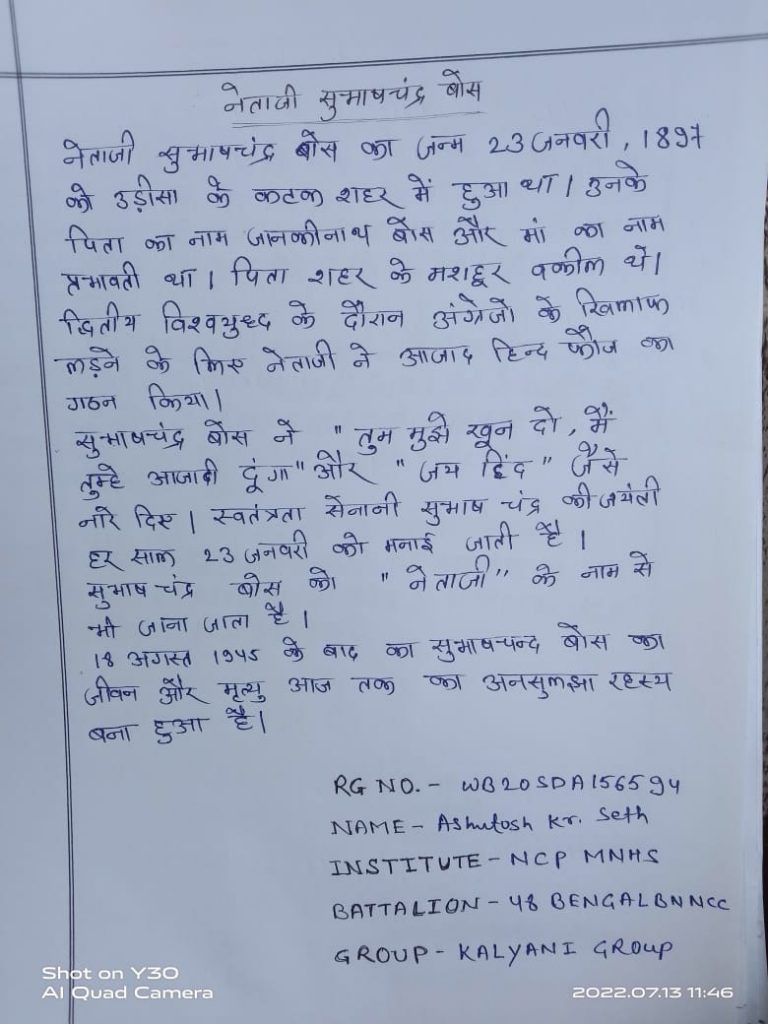 नेताजी सुभाषचंद्र बोस
नेताजी सुभाषचंद्र बोस का जन्म 23 जनवरी, 1897
को उड़ीसा के कटक शहर में हुआ था। उनके
पिता का नाम जानकीनाथ बोस और मां का नाम
प्रभावती था। पिता शहर के मशहूर वकील थे।
द्वितीय विश्वयुध्द के दौरान अंग्रेजो के खिलाफ
लड़ने के लिए नेताजी ने आजाद हिन्द फौज का
गठन किया।
सुभाषचंद्र बोस ने "तुम मुझे खून दो, मैं
तुम्हे आजादी दूंगा" और "जय हिंद" जैसे
नारे दिए। स्वतंत्रता सेनानी सुभाष चंद्र की जयंती
हर साल 23 जनवरी को मनाई जाती है।
सुभाष चंद्र बोस को "नेताजी" के नाम से
भी जाना जाता है।
18 अगस्त 1945 के बाद का सुभाषचन्द बोस का
जीवन और मृत्यु आज तक का अनसुलझा रहस्य
बना हुआ है।
RG NO.- WB20SDA156594
NAME- Ashutosh Kr. Seth
INSTITUTE- NCP MNHS
BATTALION- 48 BENGAL BN NCC
GROUP- KALYANI GROUP
Shot on Y30
AI Quad Camera
2022.07.13 11:46